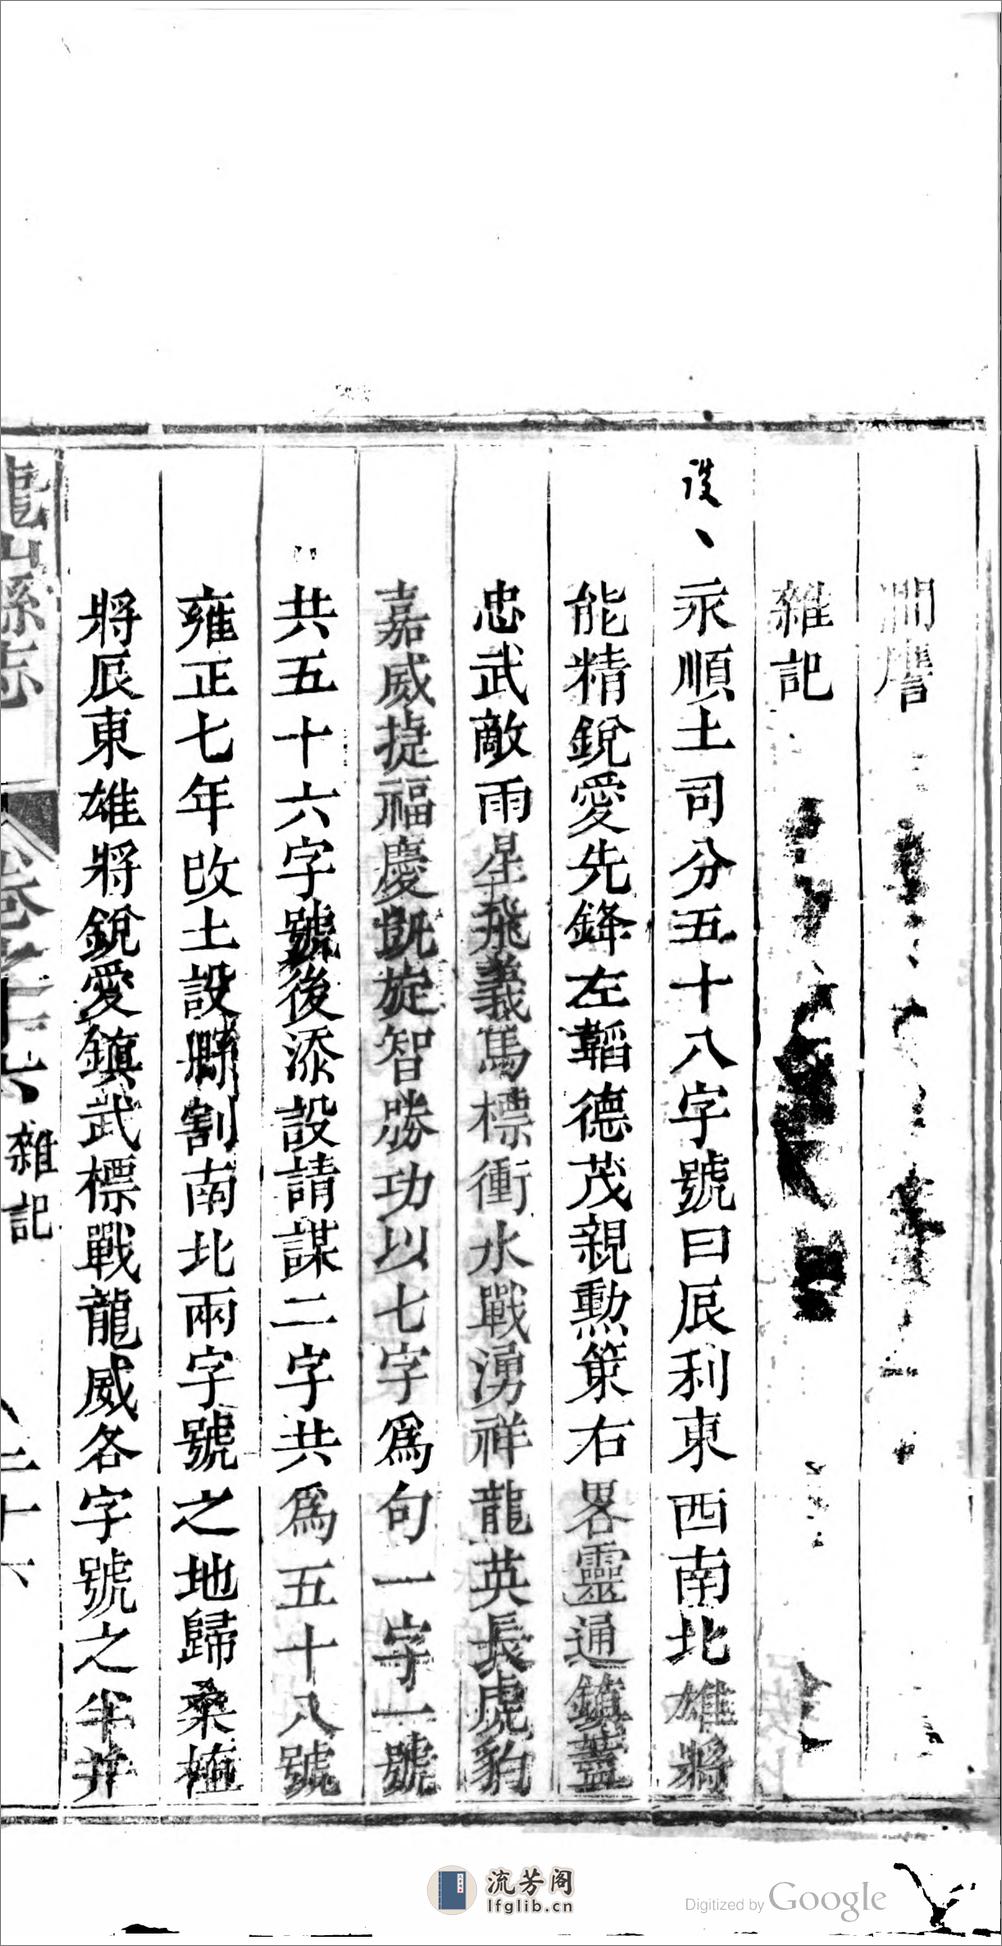 雜記
设
永順土司分五十八字號曰辰利東西南北雄將
能精銳愛先鋒左韜德茂親勳策右畧靈通鎮蓋
忠武敵雨星飛義馬標衝水戰湧祥龍英長虎豹
嘉威捷福慶凱旋智勝功以七字爲句一字一號
共五十六字號後添設請謀二字共爲五十八號
雍正七年改土設縣割南北兩字號之地歸桑植
將辰東雄將銳愛鎮武標戰龍威各字號之半并
龍山縣志 卷之十六 雜記 二十六
流芳阁
lfglib.cn
Digitized by Google